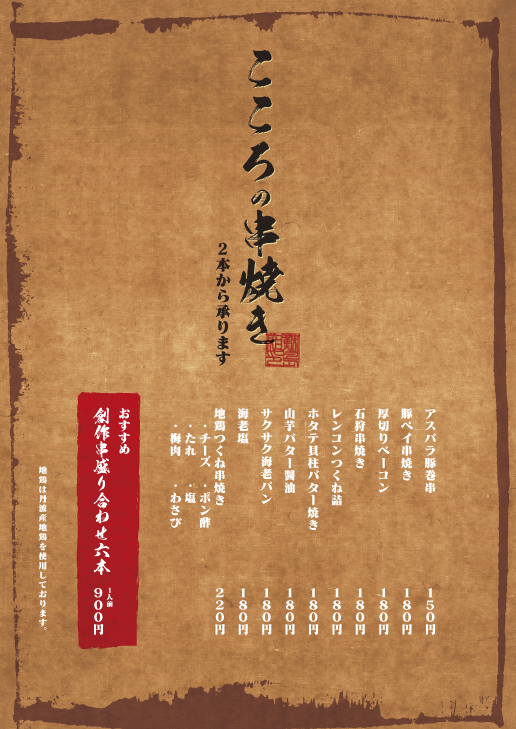 こころの串焼き
2本から承ります
アスパラ豚巻串 150円
豚ペイ串焼き 180円
厚切りベーコン 180円
石狩串焼き 180円
レンコンつくね詰 180円
ホタテ貝柱バター焼き 180円
山芋バター醤油 180円
サクサク海老パン 180円
海老塩 180円
地鶏つくね串焼き 220円
・チーズ ・ポン酢
・たれ ・塩
・梅肉 ・わさび
おすすめ
創作串盛り合わせ六本 1人前 900円
地鶏は丹波産地鶏を使用しております。